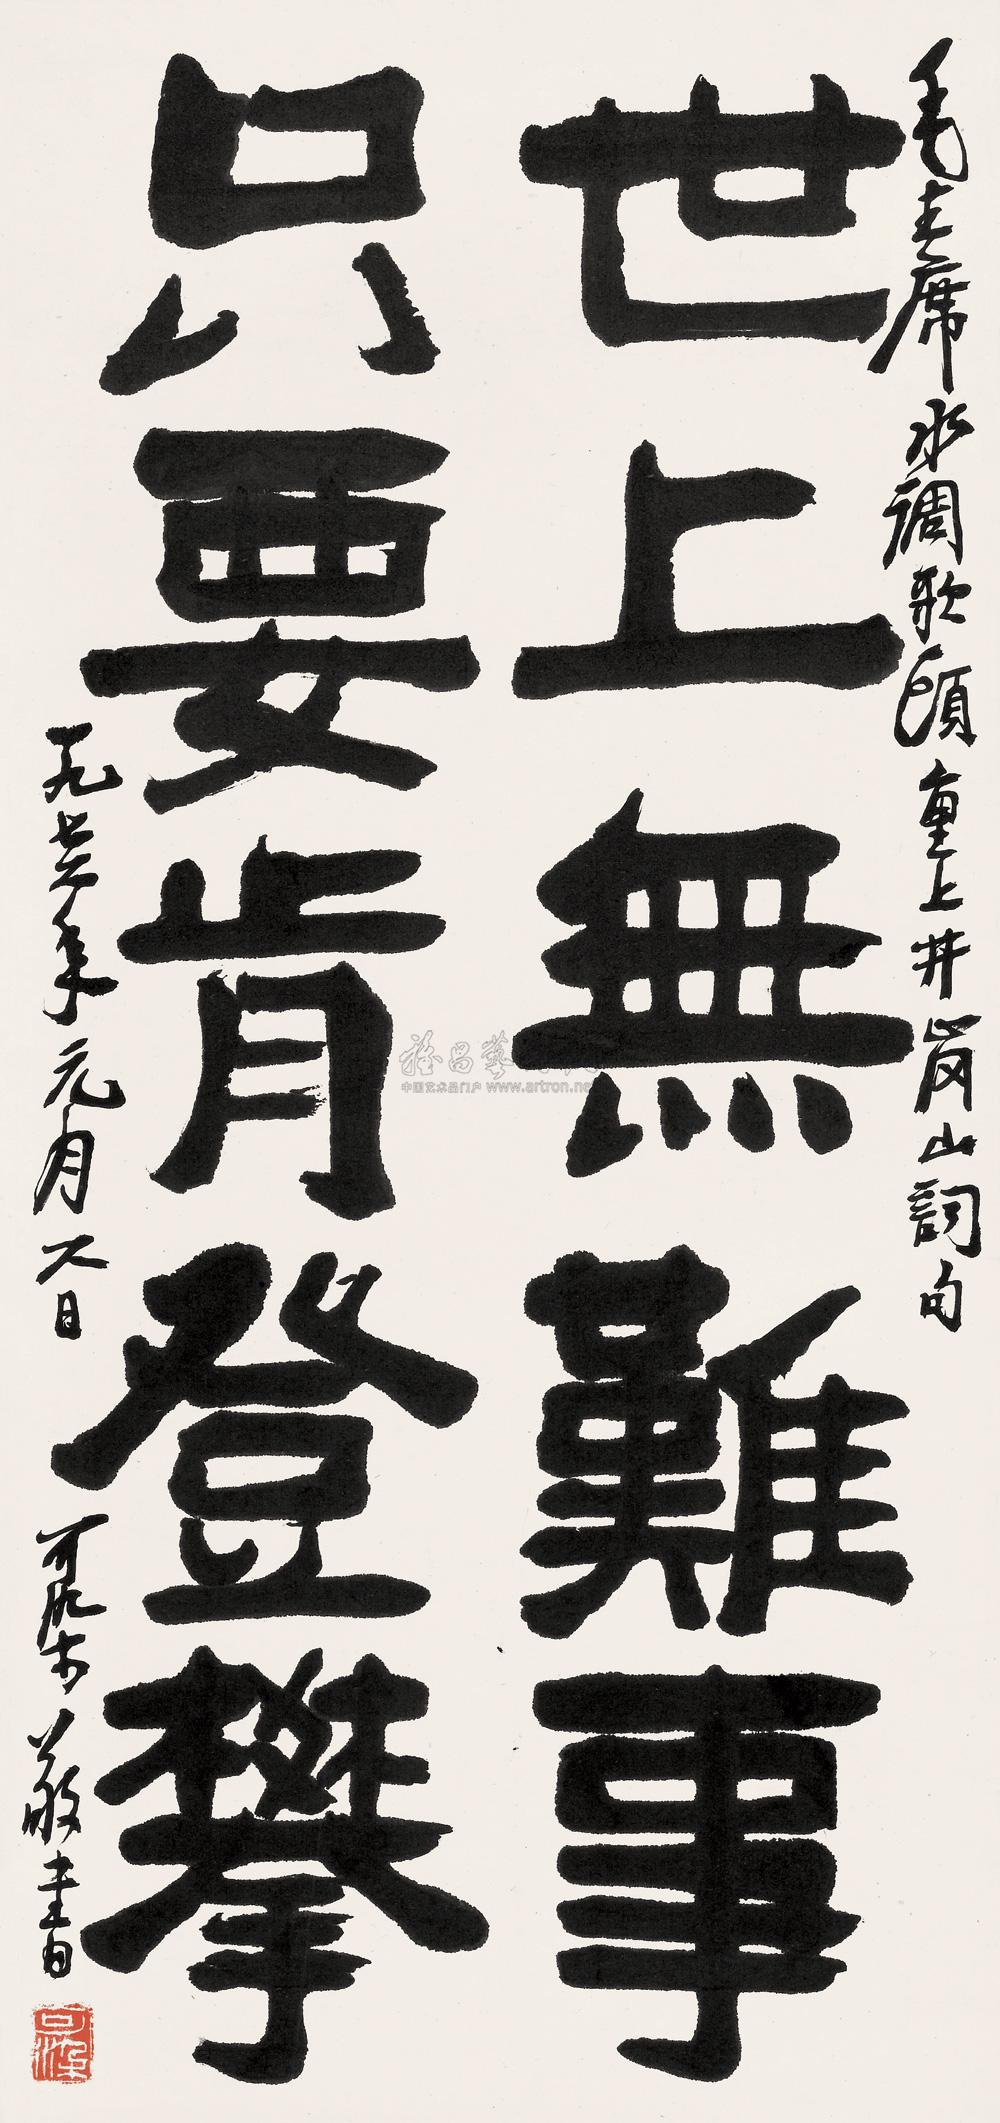 毛主席水调歌頭重上井崗山詞句
世上無難事
只要肯登攀
一九七六年元月六日 可染敬書
可染
中国艺术品门户 www.artron.net